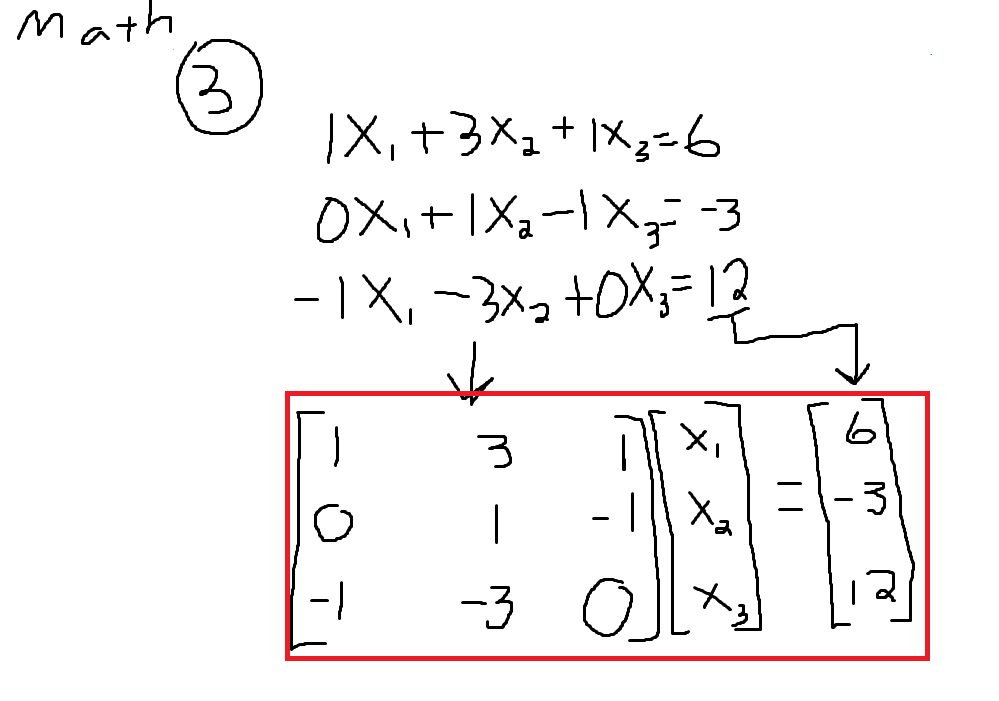 Math
3
1X₁+3X₂+1X₃=6
0X₁+1X₂-1X₃=-3
-1X₁-3X₂+0X₃=12
1 3 1 X₁ 6
0 1 -1 X₂ = -3
-1 -3 0 X₃ 12